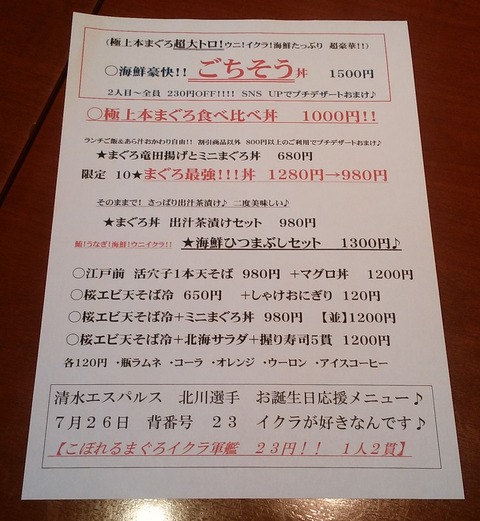 (極上本まぐろ超大トロ!ウニ!イクラ!海鮮たっぷり 超豪華!!)
○海鮮豪快!! ごちそう丼 1500円
2人目~全員 230円OFF!!!! SNS UPでプチデザートおまけ♪
○極上本まぐろ食べ比べ丼 1000円!!
ランチご飯&あら汁おかわり自由!! 割引商品以外 800円以上のご利用でプチデザートおまけ♪
★まぐろ竜田揚げとミニまぐろ丼 680円
限定 10★まぐろ最強!!!丼 1280円→980円
そのままで! さっぱり出汁茶漬け♪ 二度美味しい♪
★まぐろ丼 出汁茶漬けセット 980円
鮪!うなぎ!海鮮!ウニイクラ!! ★海鮮ひつまぶしセット 1300円♪
○江戸前 活穴子1本天そば 980円 +マグロ丼 1200円
○桜エビ天そば冷 650円 +しゃけおにぎり 120円
○桜エビ天そば冷+ミニまぐろ丼 980円 【並】1200円
○桜エビ天そば冷+北海サラダ+握り寿司5貫 1200円
各120円 ・瓶ラムネ ・コーラ ・オレンジ ・ウーロン ・アイスコーヒー
清水エスパルス 北川選手 お誕生日応援メニュー♪
7月26日 背番号 23 イクラが好きなんです♪
【こぼれるまぐろイクラ軍艦 23円!! 1人2貫】